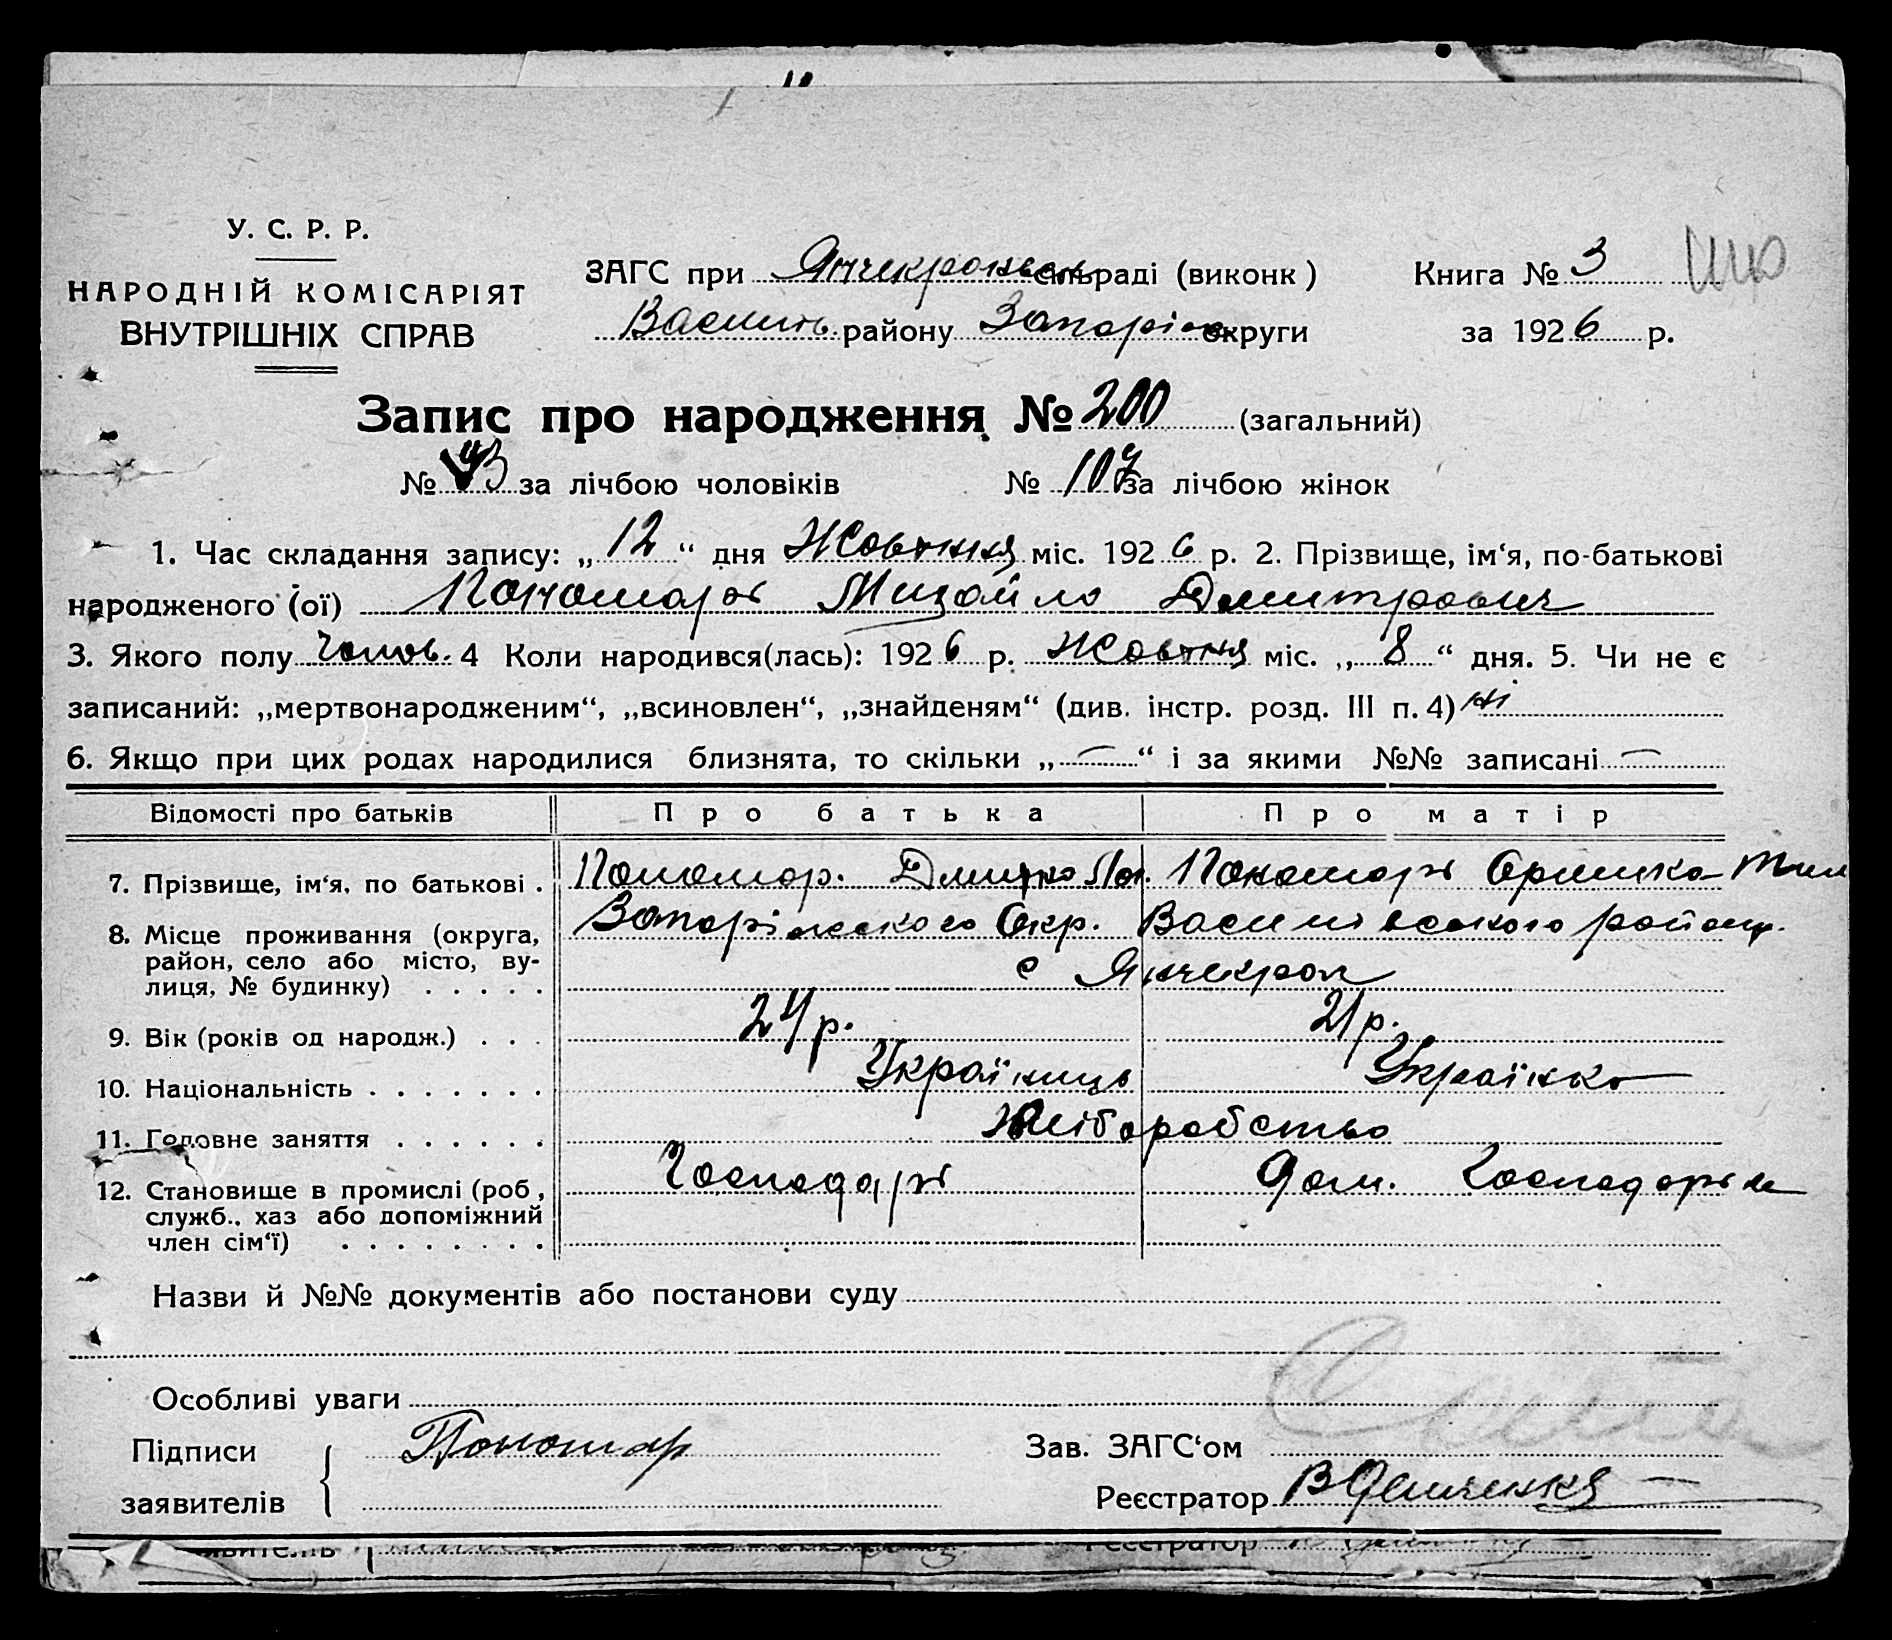 У. С. Р. Р.
НАРОДНІЙ КОМІСАРІЯТ
ВНУТРІШНІХ СПРАВ
ЗАГС при Янчекроківськ сільраді (виконк)
Книга № 3
Василів. району Запоріж округи
за 1926 р.
Запис про народження № 200 (загальний)
№ 93 за лічбою чоловіків № 107 за лічбою жінок
1. Час складання запису: „12“ дня Жовтня міс. 1926 р. 2. Прізвище, ім‘я, по-батькові
народженого (ої) Пономарь Михайло Дмитрович
3. Якого полу Чолов. 4 Коли народився(лась): 1926 р. Жовтня міс. „8“ дня. 5. Чи не є
записаний: „мертвонародженим“, „всиновлен“, „знайденям“ (див. інстр. розд. III п. 4) ні
6. Якщо при цих родах народилися близнята, то скільки „—“ і за якими №№ записані —
Відомості про батьків Про батька Про матір
7. Прізвище, ім‘я, по батькові . Пономар. Дмитро Пономарь Оришка
8. Місце проживання (округа, Запоріжського Окр. Василівського району.
район, село або місто, ву- с Янчекрак
лиця, № будинку) . . . . .
9. Вік (років од народж.) . . . 24 р. 21 р.
10. Національність . . . . . . . Українець Українка
11. Головне заняття . . . . . . Хліборобство
12. Становище в промислі (роб., Господарь Дом. Господарька
служб., хаз або допоміжний
член сім‘ї) . . . . . . . .
Назви й №№ документів або постанови суду
Особливі уваги
Підписи Пономар Зав. ЗАГС‘ом
заявителів Реєстратор В Демченко